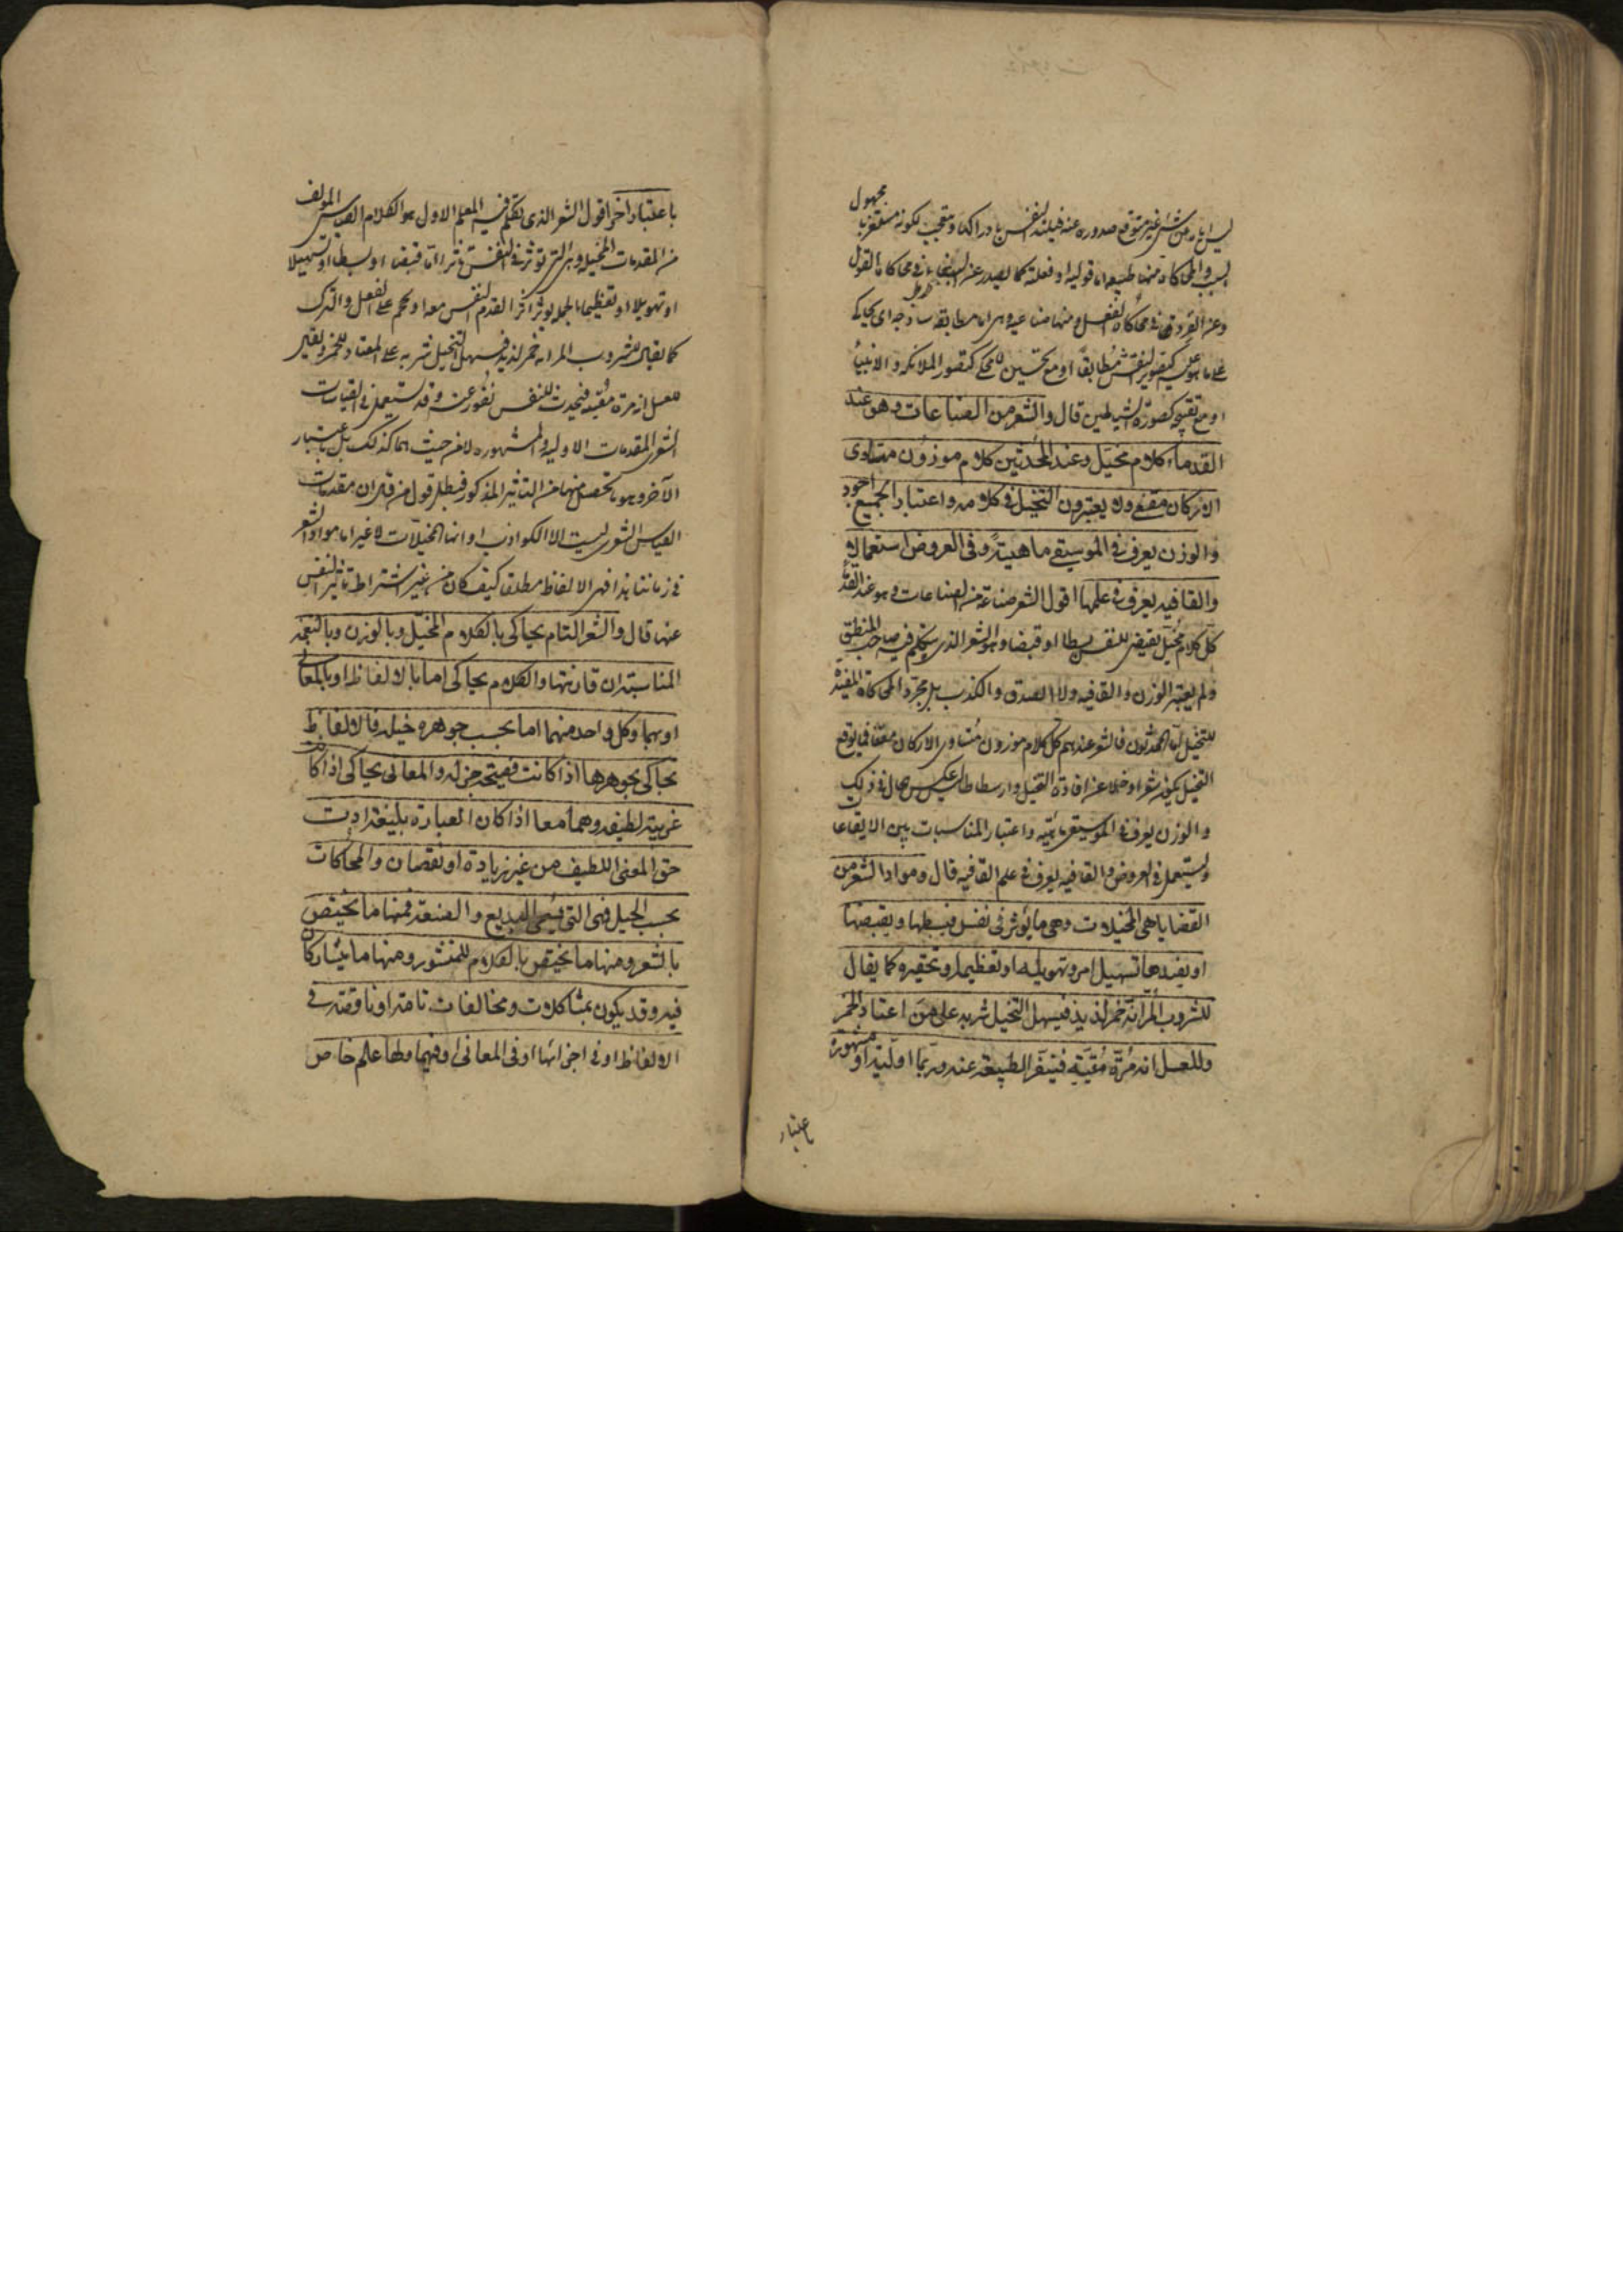 مجهول
ليس بامر من شانه غير متوقع صدوره عنه فيلتذ النفس بادراكها ومتعجب لكونه مستغربا
بسبب والمحاكاة منها طبيعية اما قولية او فعلية كما يصدر عن الببغاء في محاكاة القول
وعن القرد في محاكاة الفعل ومنها صناعية وهي اما مطابقة ساذجة اى يحاكى
على ما هو عليه كتصوير النقش مطابقا او مع تحسين للمحكى كتصور الملائكة والانبياء
او مع تقبيح كصورة الشياطين قال والشعر من الصناعات وهو عند
القدماء كلام مخيل وعند المحدثين كلام موزون متساوى
الاركان مقفى ولا يعتبرون التخيل فى كلامه واعتبار الجميع اجود
والوزن يعرف فى الموسيقى ماهيته وفى العروض استعماله
والقافيه يعرف فى علمها اقول الشعر صناعة من الصناعات وهو عند القدماء
كل كلام مخيل يقتضى للنفس بسطا او قبضا وهو الشعر الذى يتكلم فيه صاحب المنطق
ولم يعتبر الوزن والقافيه ولا الصدق والكذب بل مجرد المحاكاة المفيدة
للتخيل اما المحدثون فالشعر عندهم كل كلام موزون متساوى الاركان مقفا
التخيل يكون شعرا وخلا عن افادة التخيل وارسطاطاليس
والوزن يعرف فى الموسيقى واعتبار المناسبات بين الايقاعات
ويستعمل فى العروض والقافيه يعرف فى علم القافيه قال ومواد الشعر من
القضايا هى المخيلات وهى ما يؤثر فى نفس فيبسطها ويقبضها
او يفيدها تسهيل امر وتهويله او تعظيمه وتحقيره كما يقال
للشروب المر انه خمر لذيذ فيسهل التخيل شربه على من اعتاد الخمر
وللعسل انه مرة مقيئة فيتنفر الطبيعة عنه وربما اولية او مشهورة
باعتبار
باعتبار اخر اقول الشعر الذى يتكلم فيه المعلم الاول هو الكلام القياسى المؤلف
من المقدمات المخيلة وهى التى تؤثر فى النفس تاثرا اما قبضا او بسطا او تسهيلا
او تهويلا او تعظيما النفس الفعل والترك
كما يقال للشروب المر انه خمر لذيذ فيسهل التخيل شربه على المعتاد للخمر
للعسل انه مرة مقيئة فيحدث للنفس نفور عنه وقد يستعمل فى القياسات
الشعرى المقدمات الاولية والمشهورة لا من حيث هما كذلك بل باعتبار
الآخر وهو ما يحصل منها من التاثير المذكور فبطل قول من قال ان مقدمات
القياس الشعرى ليست الا الكواذب او انها المخيلات لا غير اما مواد الشعر
فى زماننا هذا فهى الالفاظ مطلقا كيف كان من غير اشتراط تاثير النفس
عنها قال والشعر التام يحاكى بالكلام المخيل وبالوزن وبالنغمة
المناسبة ان قارنتها والكلام يحاكى اما بالالفاظ او بالمعانى
او بهما وكل واحد منهما اما بحسب جوهره او حيله فالالفاظ
يحاكى بجوهرها اذا كانت فصيحة جزلة والمعانى يحاكى اذا كانت
غريبة لطيفة وهما معا اذا كان العبارة بليغة ادت
حق المعنى اللطيف من غير زيادة او نقصان والمحاكات
بحسب الحيل فهى التى تسمى البديع والصنعة فمنها ما يختص
بالشعر ومنها ما يختص بالكلام المنثور ومنها ما يشاركان
فيه وقد يكون بمشاكلات ومخالفات تامة او ناقصة فى
الالفاظ او فى اجزائها او فى المعانى او فيهما ولها علم خاص